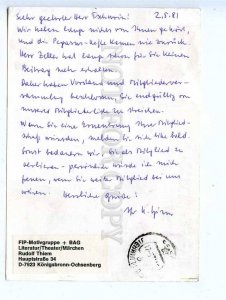 Sehr geehrter Herr          2.5.81
Wir haben lange nichts von Ihnen gehört,
und die Pegasus-Hefte kamen nie zurück.
Herr Zeller hat lange schon für Sie keinen
Beitrag mehr erhalten.
Daher haben Vorstand und Mitgliederver-
sammlung beschlossen, Sie endgültig von
unserer Mitgliederliste zu streichen.
Wenn Sie eine Erneuerung Ihrer Mitglied-
schaft wünschen, melden Sie sich bitte bald.
Sonst bedauern wir, Sie als Mitglied zu
verlieren - persönlich würde ich mich
freuen, wenn Sie weiter Mitglied bei uns
wären. Herzliche Grüße!
Ihr
FIP-Motivgruppe + BAG
Literatur/Theater/Märchen
Rudolf Thiem
Hauptstraße 34
D-7923 Königsbronn-Ochsenberg